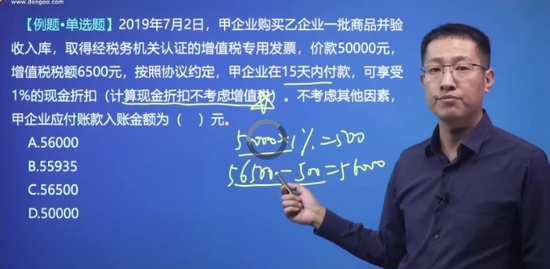 www.dongao.com
【例题·单选题】2019年7月2日，甲企业购买乙企业一批商品并验
收入库，取得经税务机关认证的增值税专用发票，价款50000元，
增值税税额6500元，按照协议约定，甲企业在15天内付款，可享受
1%的现金折扣（计算现金折扣不考虑增值税）。不考虑其他因素，
甲企业应付账款入账金额为（ ）元。
A.56000
50000×1%=500
B.55935
56500-500=56000
C.56500
D.50000